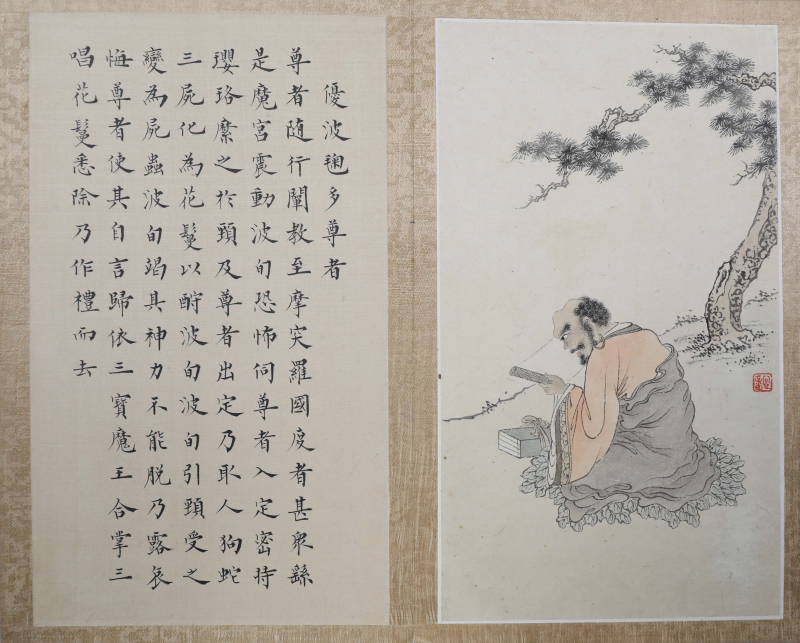 優波毱多尊者
尊者隨行闡教至摩突羅國度者甚眾繇
是魔宮震動波旬恐怖伺尊者入定密持
瓔珞縻之於頸及尊者出定乃取人狗蛇
三屍化為花鬘以酧波旬波旬引頸受之
變為屍蟲波旬竭其神力不能脫乃露哀
悔尊者使其自言歸依三寶魔王合掌三
唱花鬘悉除乃作禮而去